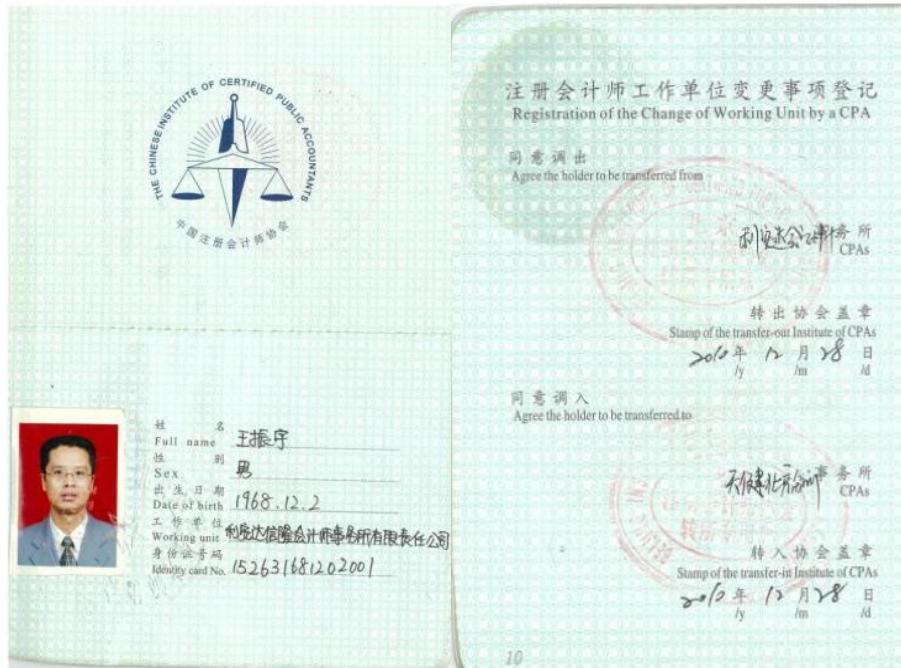 THE CHINESE INSTITUTE OF CERTIFIED PUBLIC ACCOUNTANTS
中国注册会计师协会
姓 名 王振宇
Full name
性 别 男
Sex
出生日期 1968.12.2
Date of birth
工作单位 利安达信隆会计师事务所有限责任公司
Working unit
身份证号码 152631681202001
Identity card No.
注册会计师工作单位变更事项登记
Registration of the Change of Working Unit by a CPA
同意调出
Agree the holder to be transferred from
事务所
CPAs
转出协会盖章
Stamp of the transfer-out Institute of CPAs
2010 年 12 月 28 日
/y /m /d
同意调入
Agree the holder to be transferred to
事务所
CPAs
转入协会盖章
Stamp of the transfer-in Institute of CPAs
2010 年 12 月 28 日
/y /m /d
10